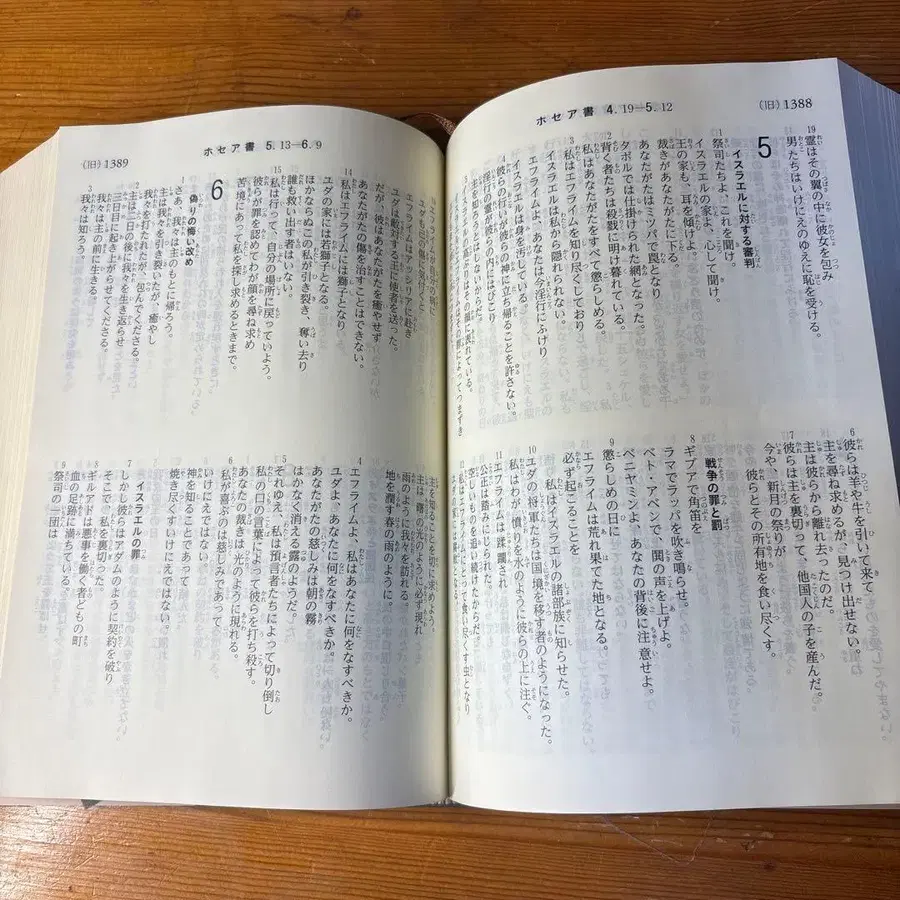 ホセア書 4.19—5.12
(旧) 1388
19 霊はその翼の中に彼女を包み
男たちはいけにえのゆえに恥を受ける。
5
イスラエルに対する審判
1 祭司たちよ、これを聞け。
イスラエルの家よ、心して聞け。
王の家も、耳を傾けよ。
裁きがあなたがたに下る。
あなたがたはミツパで罠となり
タボルでは仕掛けられた網となった。
2 背く者たちは殺戮に明け暮れている。
私はあなたがたをすべて懲らしめる。
3 私はエフライムを知り尽くしており
イスラエルは私から隠れられない。
エフライムよ、あなたは今淫行にふけり
イスラエルは身を汚している。
4 彼らの行いが彼らの神に立ち帰ることを許さない。
淫行の霊が彼らの内にはびこり
主を知ろうとはしないからだ。
6 彼らは羊や牛を引いて来て
主を尋ね求めるが、見つけ出せない。
主は彼らから離れ去ったのだ。
7 彼らは主を裏切って、他国人の子を産んだ。
今や、新月の祭りが
彼らとその所有地を食い尽くす。
戦争の罪と罰
8 ギブアで角笛を
ラマでラッパを吹き鳴らせ。
ベト・アベンで、鬨の声を上げよ。
ベニヤミンよ、あなたの背後に注意せよ。
9 懲らしめの日に
エフライムは荒れ果てた地となる。
必ず起こることを
私はイスラエルの諸部族に知らせた。
10 ユダの将軍たちは国境を移す者のようになった。
私はわが憤りを水のように彼らの上に注ぐ。
11 エフライムは蹂躙され
公正は踏みにじられた。
空しいものを追い続けたからだ。
ホセア書 5.13—6.9
(旧) 1389
エフライムはアッシリアに赴き
ユダは敵対する王に使者を送った。
だが、彼はあなたがたを癒やせず
あなたがたの傷を治すことはできない。
14 私はエフライムには獅子となり
ユダの家には若獅子となる。
ほかならぬこの私が引き裂き、奪い去り
誰も救い出す者はいない。
15 私は行って、自分の場所に戻っていよう。
彼らが罪を認めてわが顔を尋ね求め
苦境にあって私を探し求めるときまで。
6
偽りの悔い改め
1 さあ、我々は主のもとに帰ろう。
主は我々を引き裂いたが、癒やし
我々を打たれたが、包んでくださる。
2 主は二日の後に我々を生き返らせ
三日目に起き上がらせてくださる。
我々は主の前に生きる。
3 我々は知ろう。
主を知ることを切に求めよう。
主は曙の光のように必ず現れ
雨のように我々を訪れる。
地を潤す春の雨のように。
4 エフライムよ、私はあなたに何をなすべきか。
ユダよ、あなたに何をなすべきか。
あなたがたの慈しみは朝の霧
はかなく消える露のようだ。
5 それゆえ、私は預言者たちによって切り倒し
私の口の言葉によって彼らを打ち殺す。
あなたの裁きは光のように現れる。
6 私が喜ぶのは慈しみであって
いけにえではない。
神を知ることであって
焼き尽くすいけにえではない。
イスラエルの罪
7 しかし彼らはアダムのように契約を破り
そこで、私を裏切った。
8 ギルアドは悪事を働く者どもの町
血の足跡に満ちている。
9 祭司の一団は